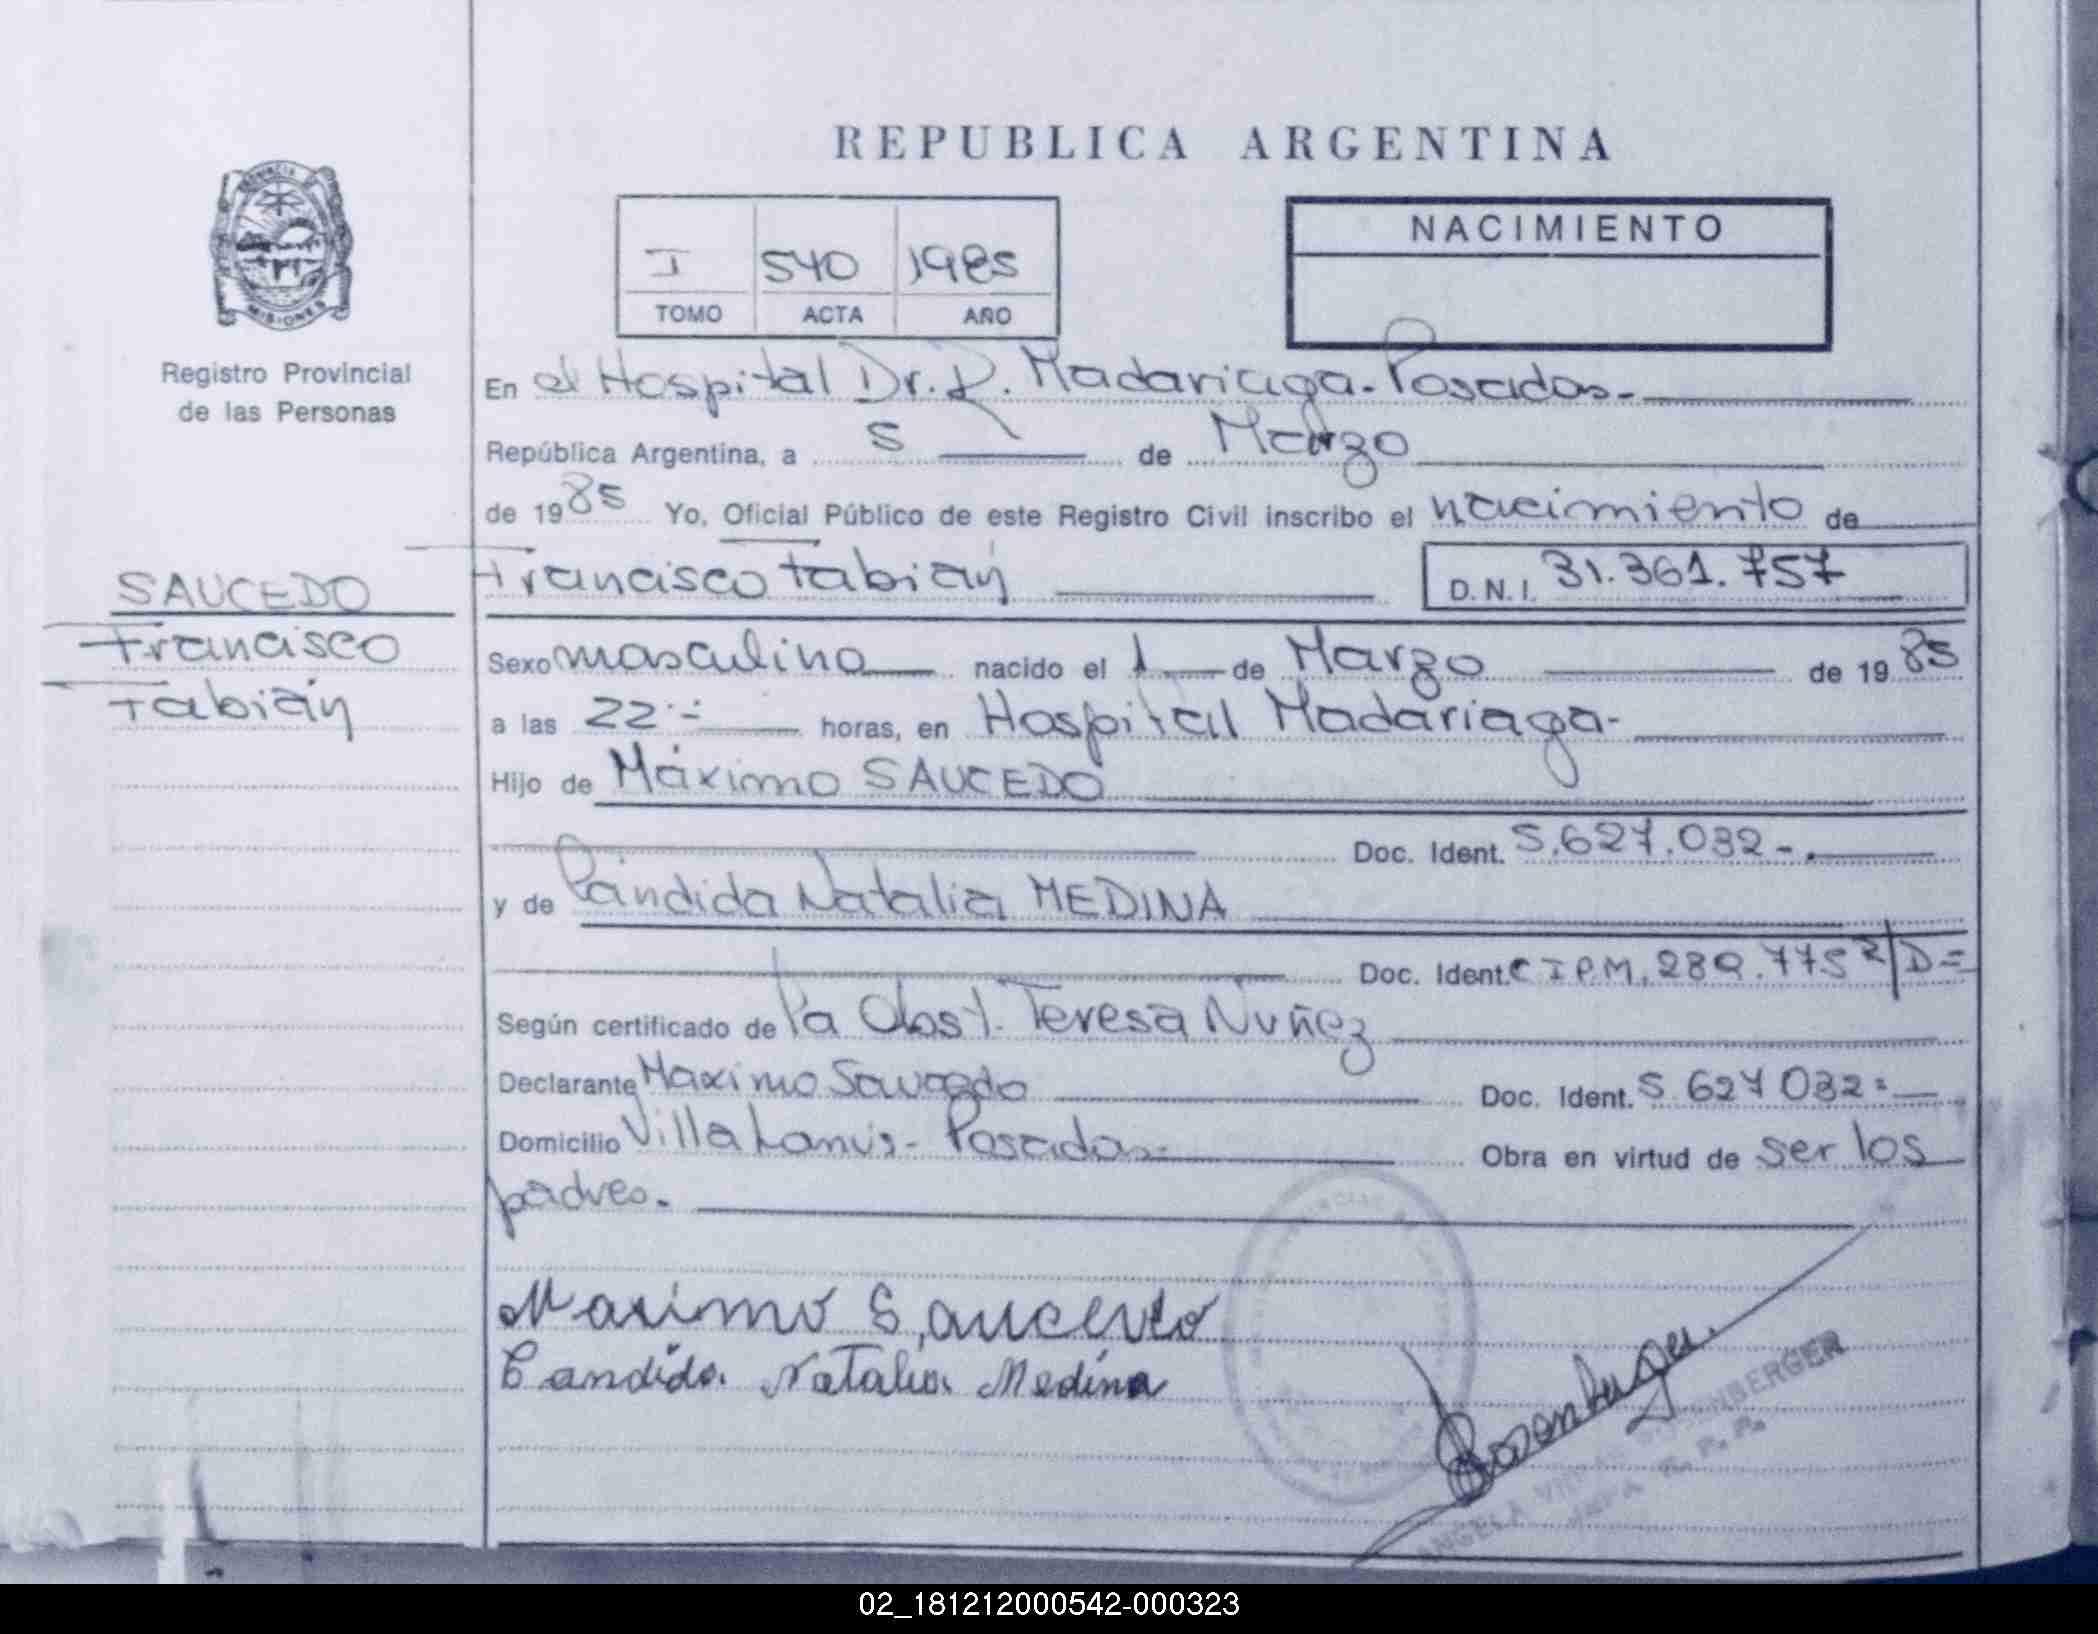 REPUBLICA ARGENTINA
PROVINCIA
MISIONES
Registro Provincial
de las Personas
I 540 1985
TOMO ACTA AÑO
NACIMIENTO
En el Hospital Dr. R. Madariaga-Posadas.-
República Argentina, a 5 de Marzo
de 1985 Yo, Oficial Público de este Registro Civil inscribo el nacimiento de
Francisco Fabián D.N.I. 31.361.757
SAUCEDO
Francisco
Fabián
Sexo masculino nacido el 1 de Marzo de 1985
a las 22:- horas, en Hospital Madariaga-
Hijo de Máximo SAUCEDO
Doc. Ident. 5.627.032-.
y de Cándida Natalia MEDINA
Doc. Ident. C I P.M. 289.775 R/D=
Según certificado de la Obst. Teresa Nuñez
Declarante Maximo Saucedo Doc. Ident. 5.627 032=
Domicilio Villa Lanus- Posadas- Obra en virtud de ser los
padres.
Maximo Saucedo
Candida Natalia Medina
ANGELA
JEFA R.P.P.
02_181212000542-000323